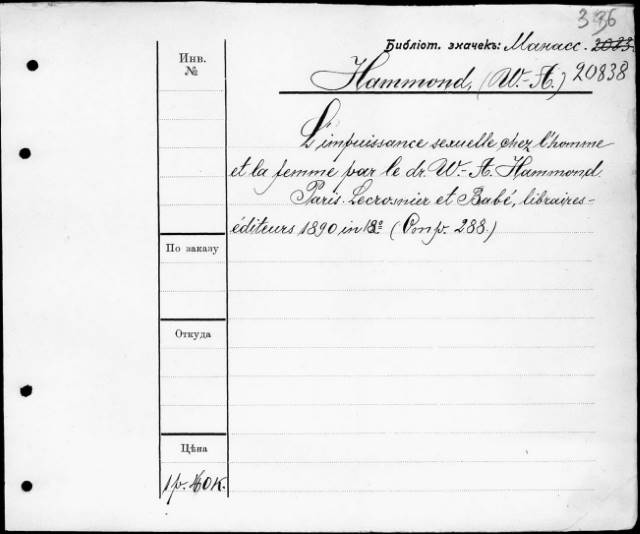 396
Библіот. значекъ: Манасс. 2083
Инв.
№
Hammond, (W.-A.) 20838
L'impuissance sexuelle chez l'homme
et la femme par le dr. W.-A. Hammond.
Paris. Lecrosnier et Babé, libraires-
éditeurs 1890 in 18º (Стр. 288.)
По заказу
Откуда
Цѣна
1 р. 40 к.